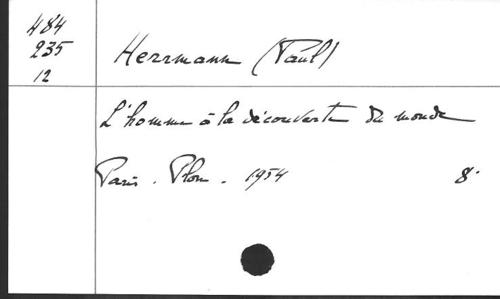 484
235
12
Herrmann (Paul)
L'homme à la découverte du monde
Paris. Plon. 1954 8°